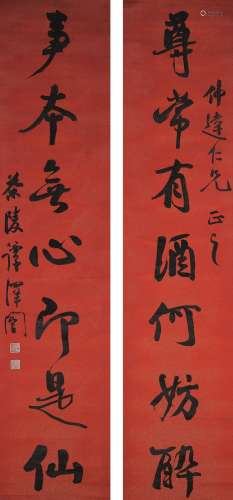 尊常有酒何妨醉
仲達仁兄正之
事本無心即是仙
茶陵譚澤闓